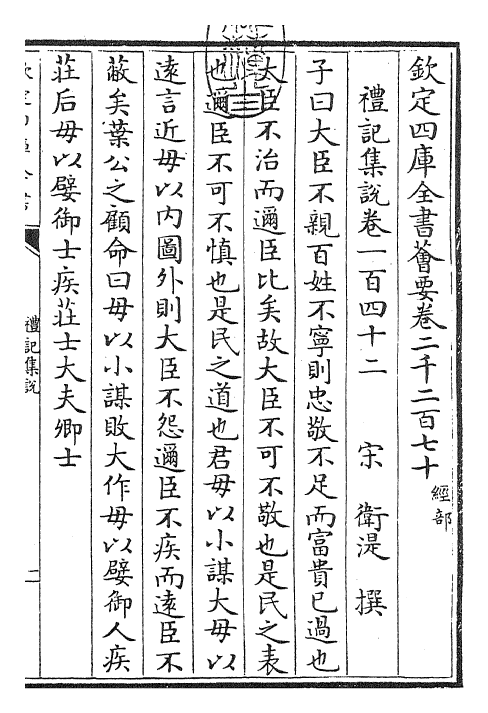 欽定四庫全書薈要卷二千二百七十
經部
禮記集說卷一百四十二　宋　衛湜　撰
子曰大臣不親百姓不寧則忠敬不足而富貴已過也
大臣不治而邇臣比矣故大臣不可不敬也是民之表
也邇臣不可不慎也是民之道也君毋以小謀大毋以
遠言近毋以內圖外則大臣不怨邇臣不疾而遠臣不
蔽矣葉公之顧命曰毋以小謀敗大作毋以嬖御人疾
莊后毋以嬖御士疾莊士大夫卿士
禮記集說